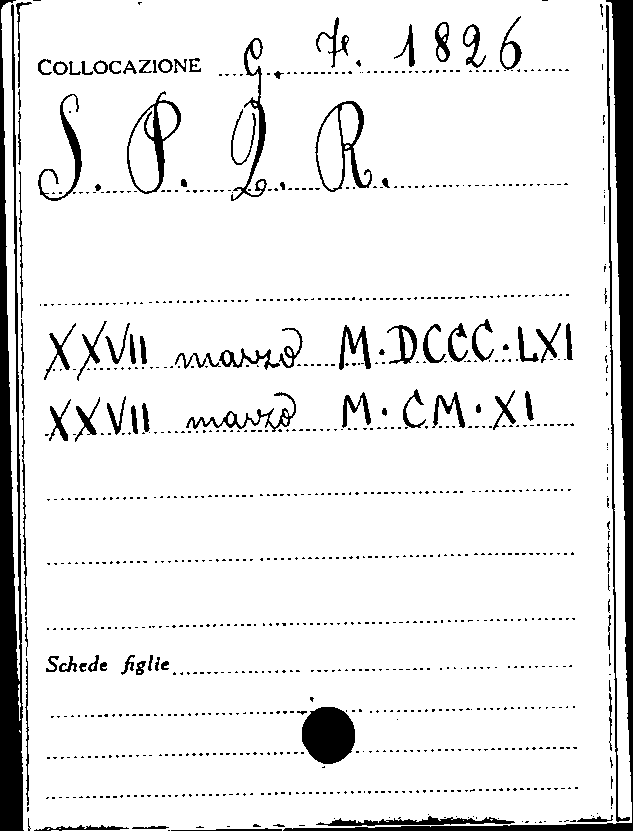 COLLOCAZIONE G. 7. 1826
S. P. Q. R.
XXVII marzo M·DCCC·LXI
XXVII marzo M·CM·XI
Schede figlie